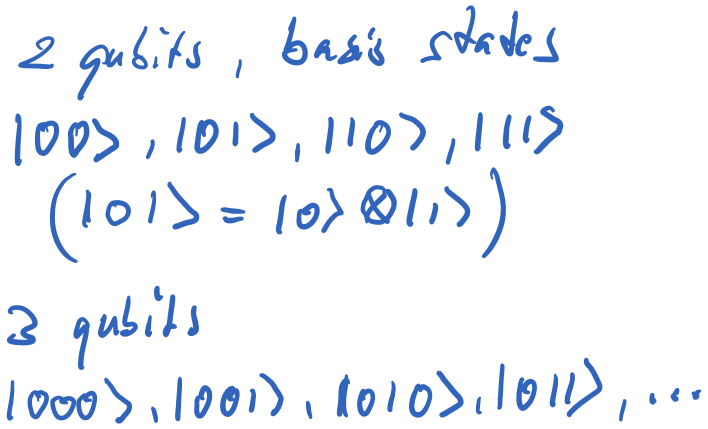 2 qubits, basis states
|00⟩, |01⟩, |10⟩, |11⟩
(|01⟩ = |0⟩⊗|1⟩)
3 qubits
|000⟩, |001⟩, |010⟩, |011⟩, ...